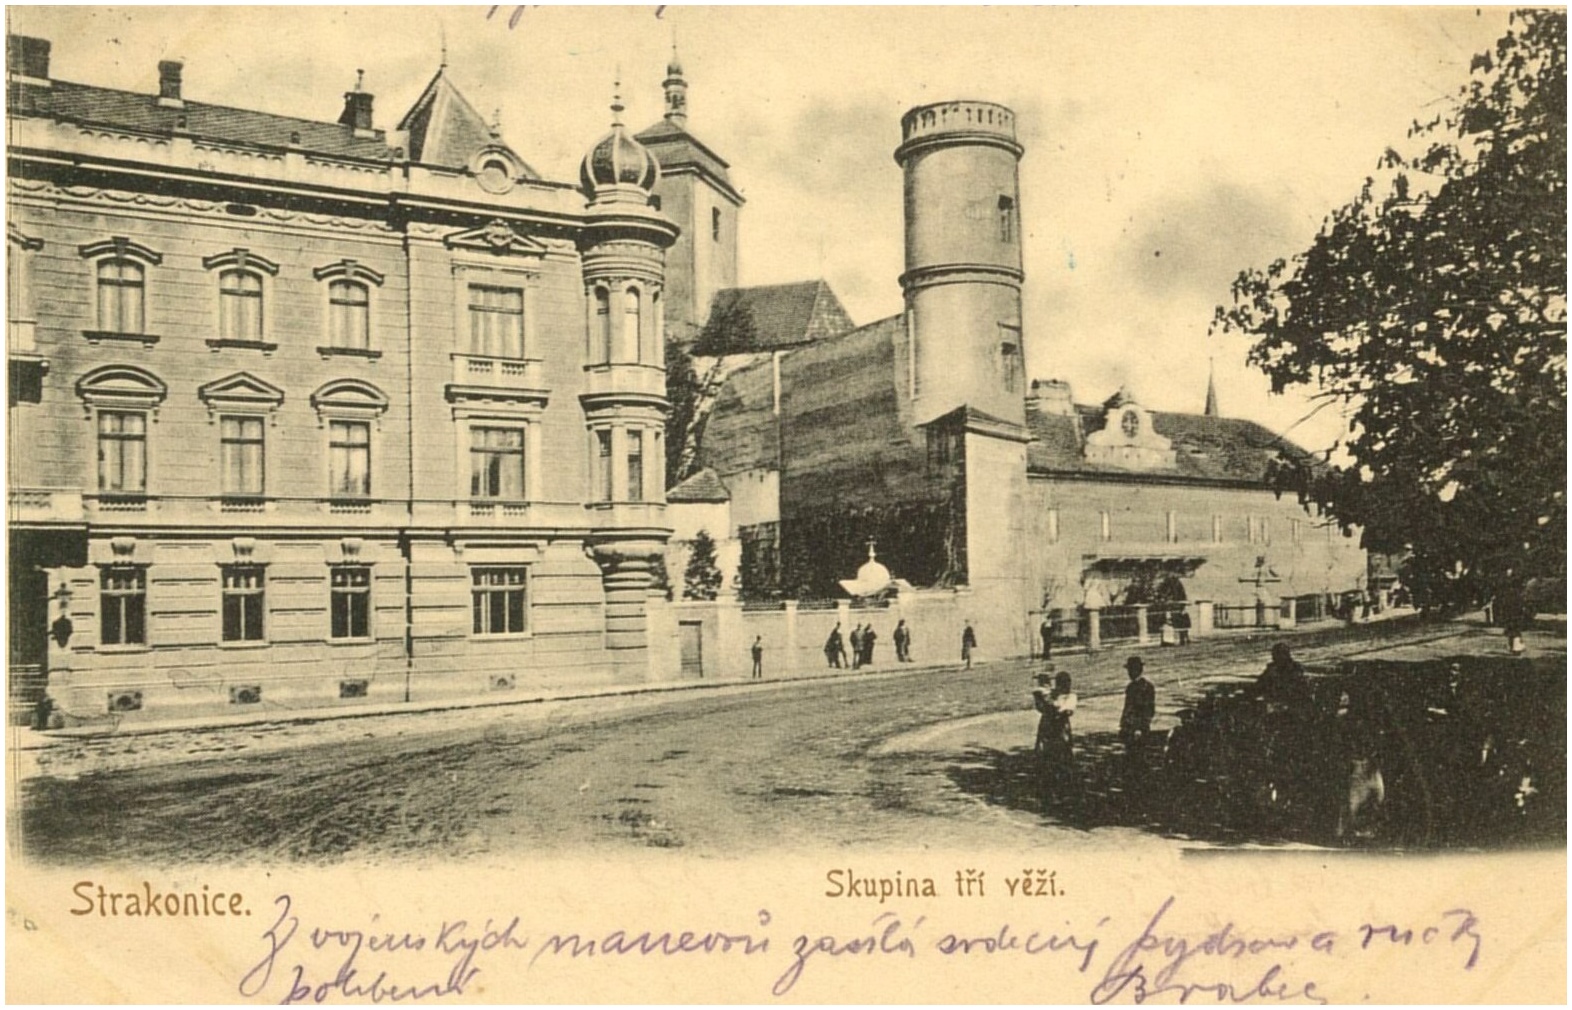 Strakonice.
Skupina tří věží.
Z vojenských manevrů zasílá srdečný pozdrav a ručky
políbení Brabec.